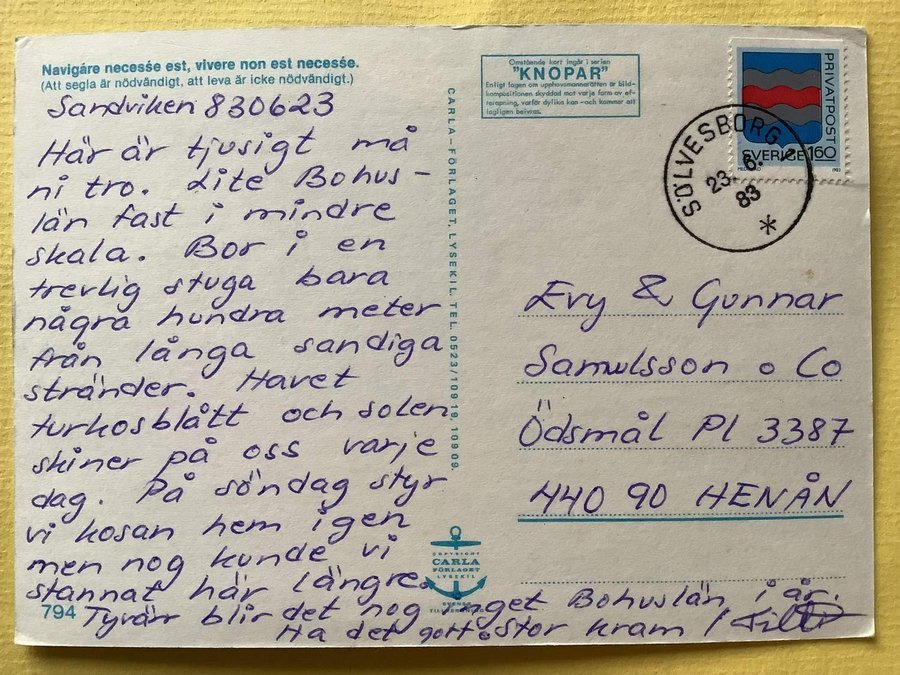 Navigáre necesśe est, vivere non est necesśe.
(Att segla är nödvändigt, att leva är icke nödvändigt.)
Sandviken 830623
Här är tjusigt må
ni tro. Lite Bohus-
län fast i mindre
skala. Bor i en
trevlig stuga bara
några hundra meter
från långa sandiga
stränder. Havet
turkosblått och solen
skiner på oss varje
dag. På söndag styr
vi kosan hem igen
men nog kunde vi
stannat här längre.
794 Tyvärr blir det nog inget Bohuslän i år.
Ha det gott. Stor kram /
CARLA-FÖRLAGET, LYSEKIL, TEL. 0523/109 19, 109 09.
COPYRIGHT
CARLA
FÖRLAGET
LYSEKIL
Omstående kort ingår i serien
"KNOPAR"
Enligt lagen om upphovsmannarätten är bild-
kompositionen skyddad mot varje form av ef-
terapning, varför dylika kan - och kommer att
lagligen beivras.
PRIVATPOST
SVERIGE 160
1983
SÖLVESBORG 1
23. 6.
83
Evy & Gunnar
Samulsson o Co
Ödsmål Pl 3387
440 90 HENÅN